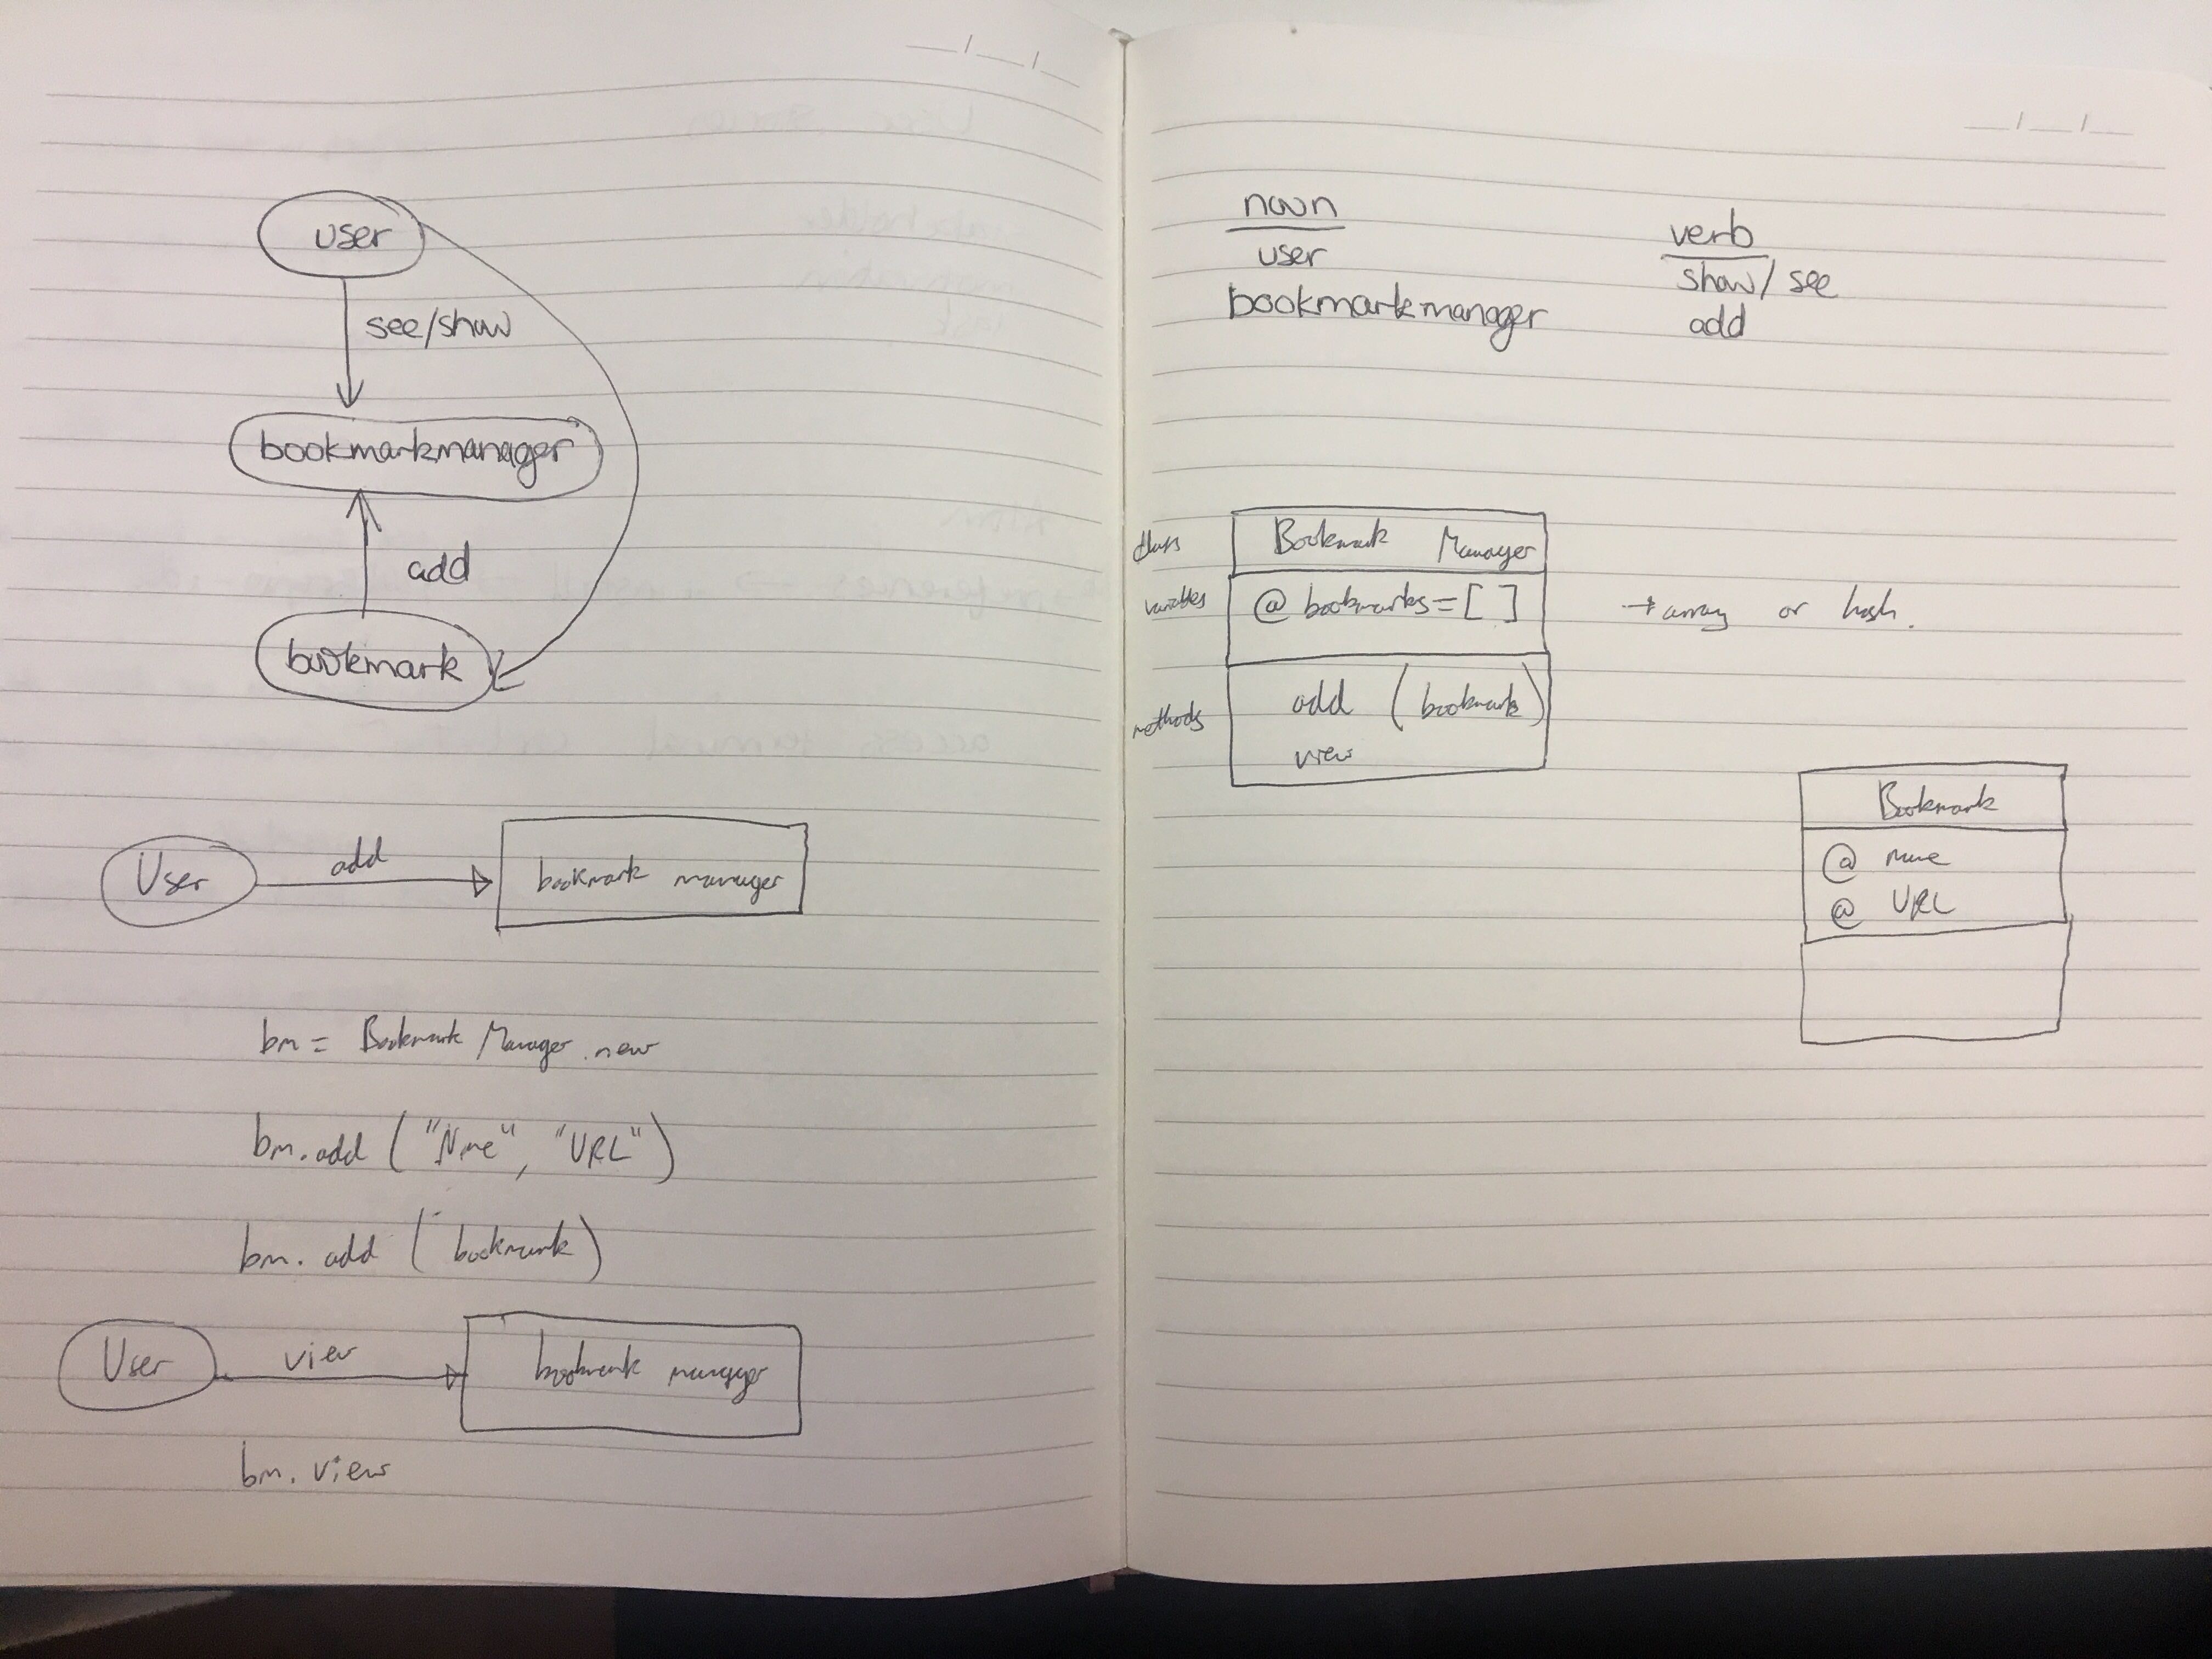 user
see/show
bookmarkmanager
add
bookmark
User add bookmark manager
bm = Bookmark Manager.new
bm.add ("Nme", "URL")
bm. add (bookmark)
User view bookmark manager
bm. view
noun
user
bookmarkmanager
verb
show/see
add
class Bookmark Manager
variables @ bookmarks = [ ] → array or hash.
methods add (bookmark)
view
Bookmark
@ name
@ URL